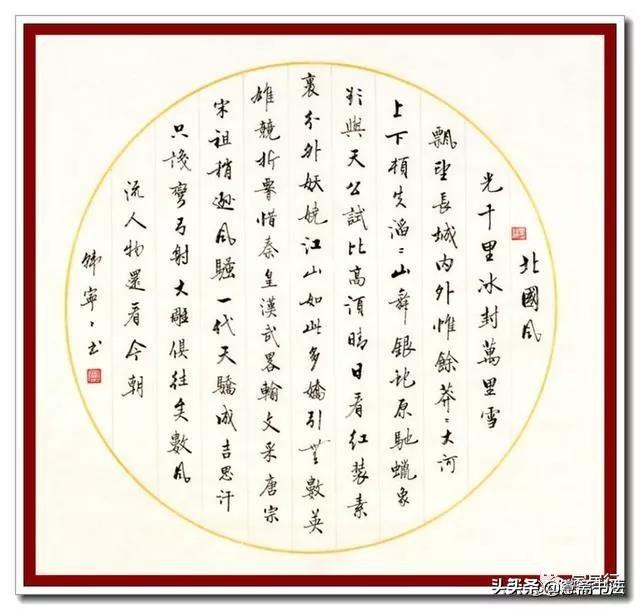 北國風
光千里冰封萬里雪
飄望長城內外惟餘莽〻大河
上下頓失滔〻山舞銀蛇原馳蠟象
欲與天公試比高須晴日看紅裝素
裹分外妖嬈江山如此多嬌引無數英
雄競折腰惜秦皇漢武畧輸文采唐宗
宋祖稍遜風騷一代天驕成吉思汗
只識彎弓射大雕俱往矣數風
流人物還看今朝
韓寧〻書
头条 书法